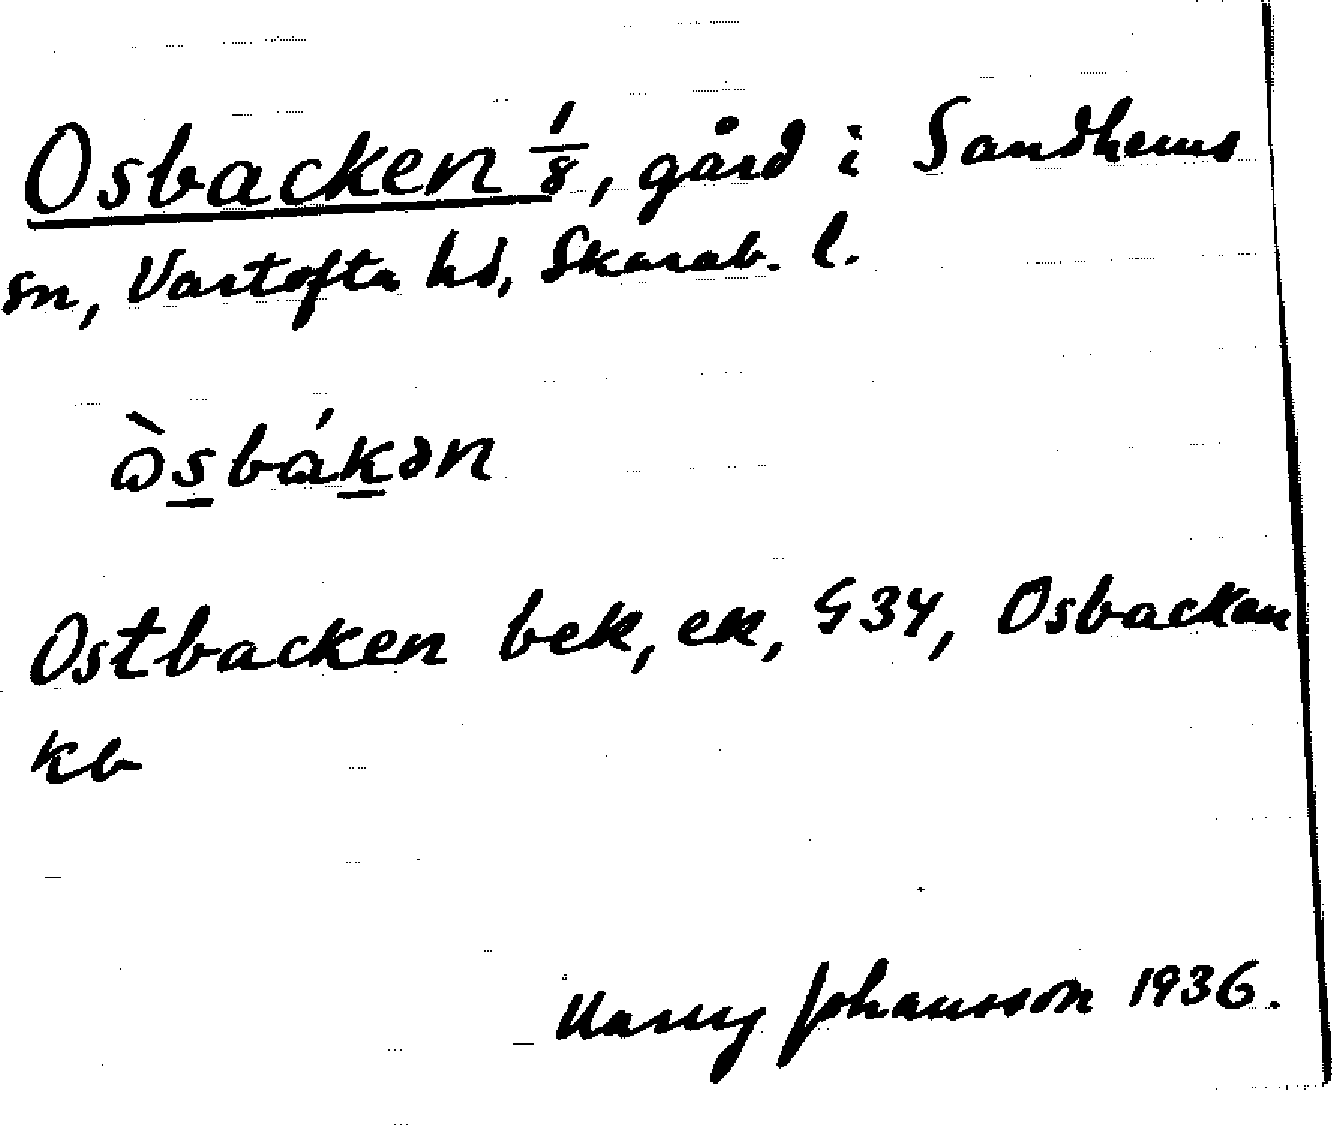 Osbacken 1/8, gård i Sandhems
sn, Vartofta hd, Skarab. l.
ὼs̲bák̲ən
Ostbacken bek, ek, G34, Osbacken
kb
Harry Johansson 1936.